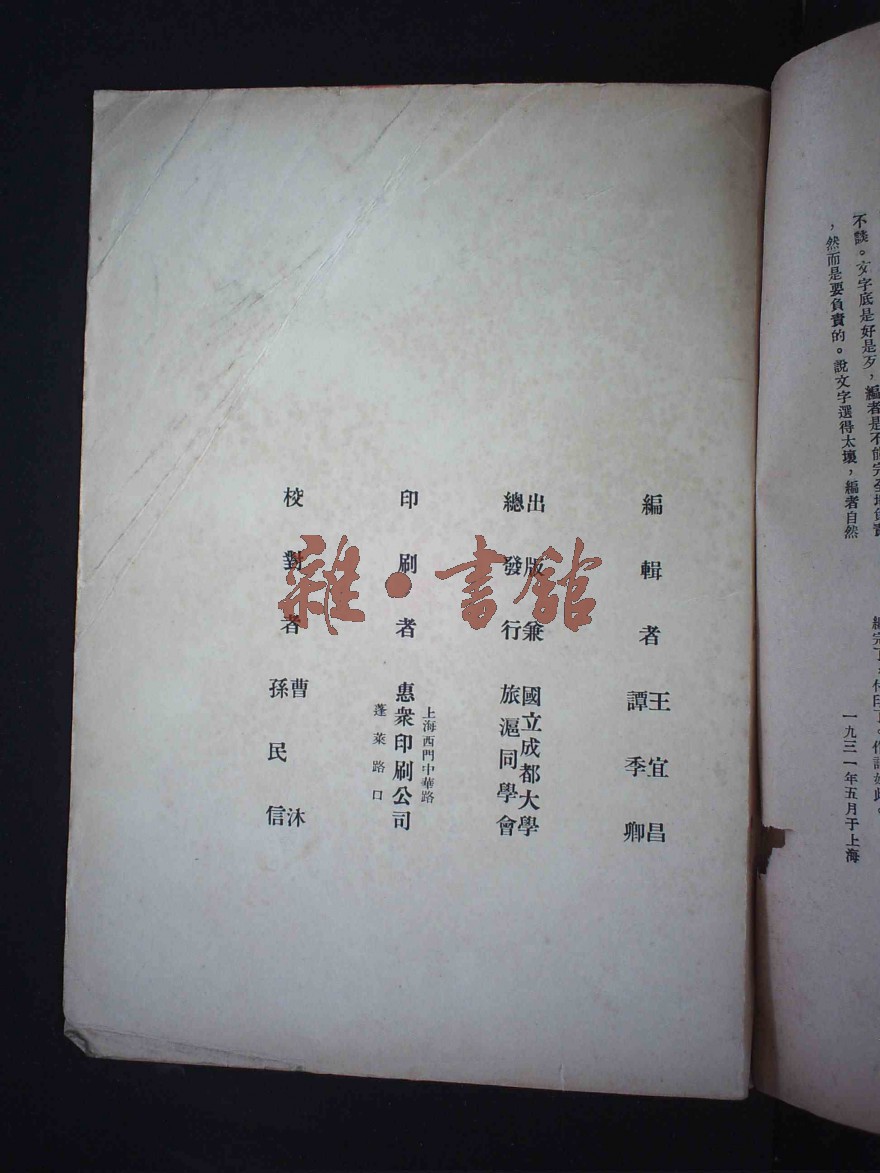 不談。文字底是好是歹，編者是不能完全地負責
，然而是要負責的。說文字選得太壞，編者自然
編完了，付印了。作記如此。
一九三一年五月于上海
編輯者 王宜昌
譚季卿
出版兼
總發行
國立成都大學
旅滬同學會
印刷者 惠衆印刷公司
上海西門中華路
蓬萊路口
校對者 曹沐
孫民信
雜·書館